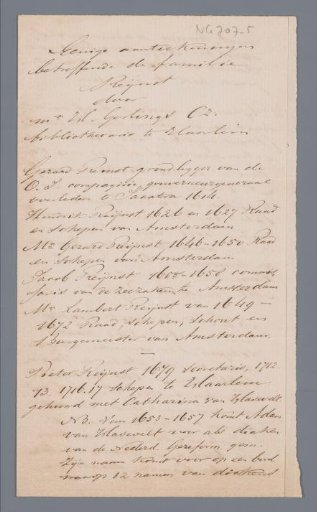 NG 707-5
Eenige aanteekeningen
betreffende de familie
Reijnst
door
Mr
bibliothecaris te Haarlem
Gerard Reijnst grondlegger van de
O. I. compagnie, gouverneur generaal
overleden te Jacatra 1614
Hendrik Reijnst 1626 en 1627 Raad
en Schepen van Amsterdam
Mr Gerard Reijnst 1646-1650 Raad
en Schepen van Amsterdam
Jacob Reijnst 1655-1658 commis-
saris van de zeezaken te Amsterdam
Mr Lambert Reijnst van 1649 –
1672 Raad, Schepen, Schout en
Burgemeester van Amsterdam.
—
Pieter Reijnst 1679 Secretaris, 1712
13. 1716.17 Schepen te Haarlem
gehuwd met Catharina van
NB. Van 1653-1657 komt Adam
van voor als diaken
van de Nederd. Gereform. gem.
Zijn naam komt voor op een bord
waarop 12 namen van diakens